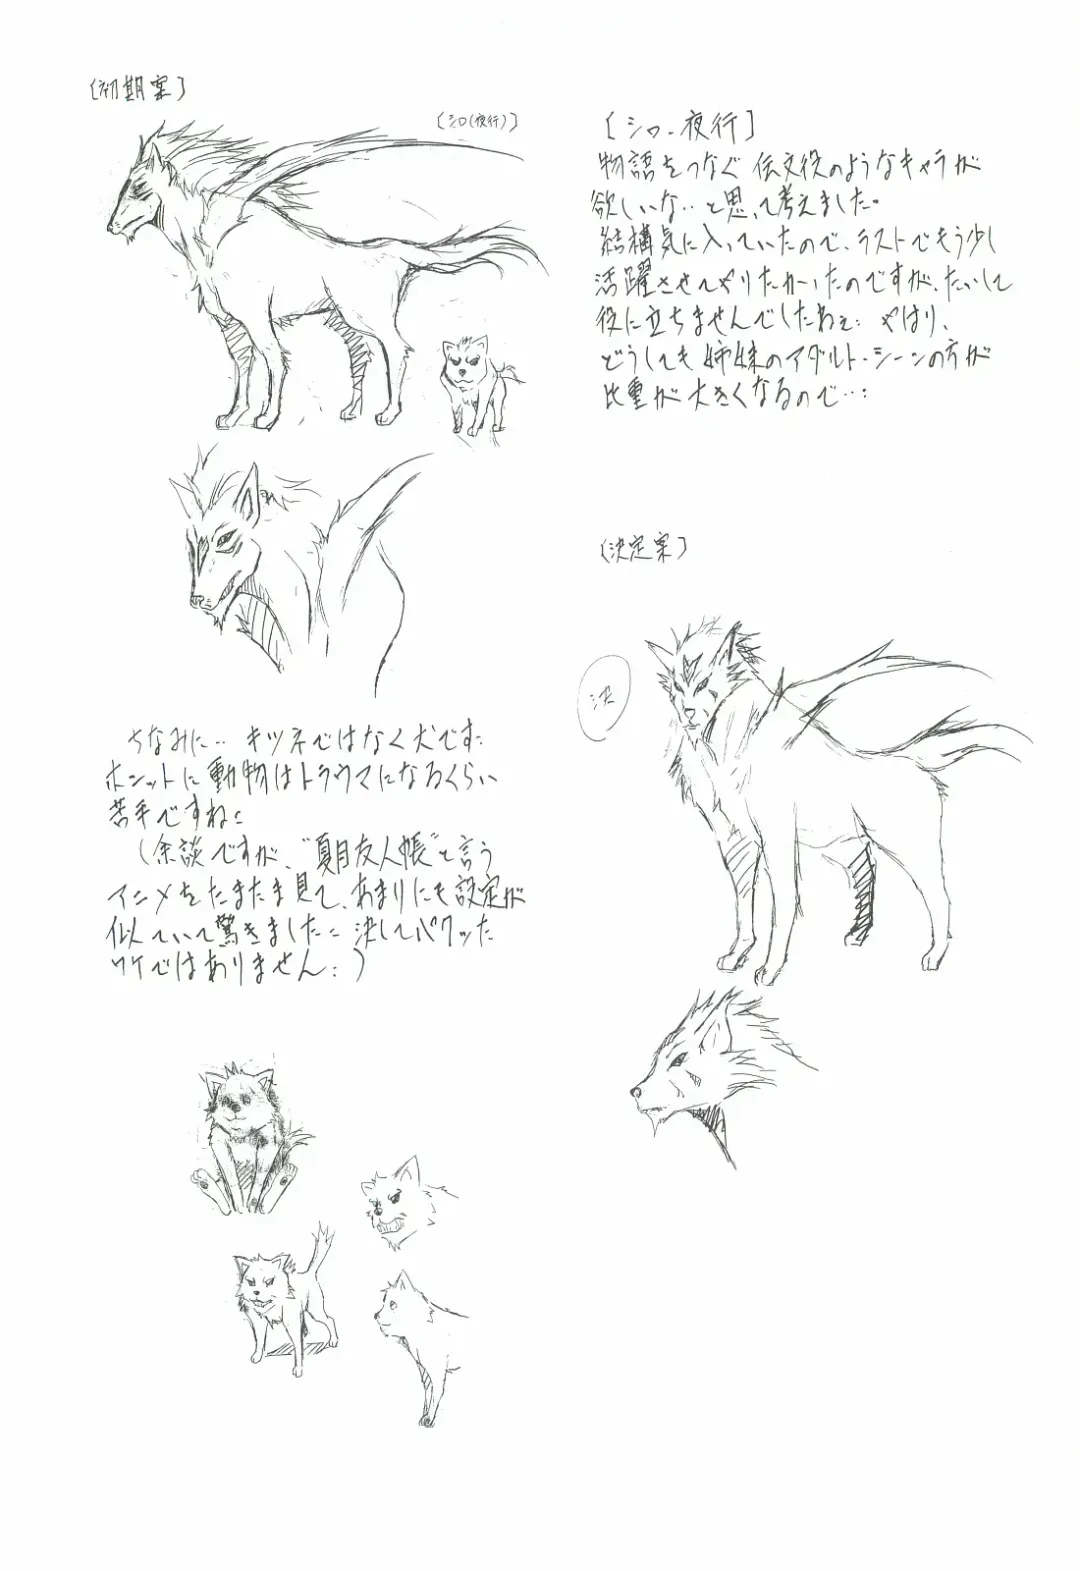 〔初期案〕
〔シロ(夜行)〕
〔シロ-夜行〕
物語をつなぐ伝文役のようなキャラが
欲しいな‥と思って考えました。
結構気に入っていたので、ラストでもう少し
活躍させてやりたかったのですが、たいして
役に立ちませんでしたねぇ: やはり、
どうしても姉妹のアダルト・シーンの方が
比重が大きくなるので…:
〔決定案〕
決
ちなみに‥キツネではなく犬です:
ホンットに動物はトラウマになるくらい
苦手ですね:
(余談ですが、"夏目友人帳"と言う
アニメをたまたま見て、あまりにも設定が
似ていて驚きました: 決してパクッた
ワケではありません:)